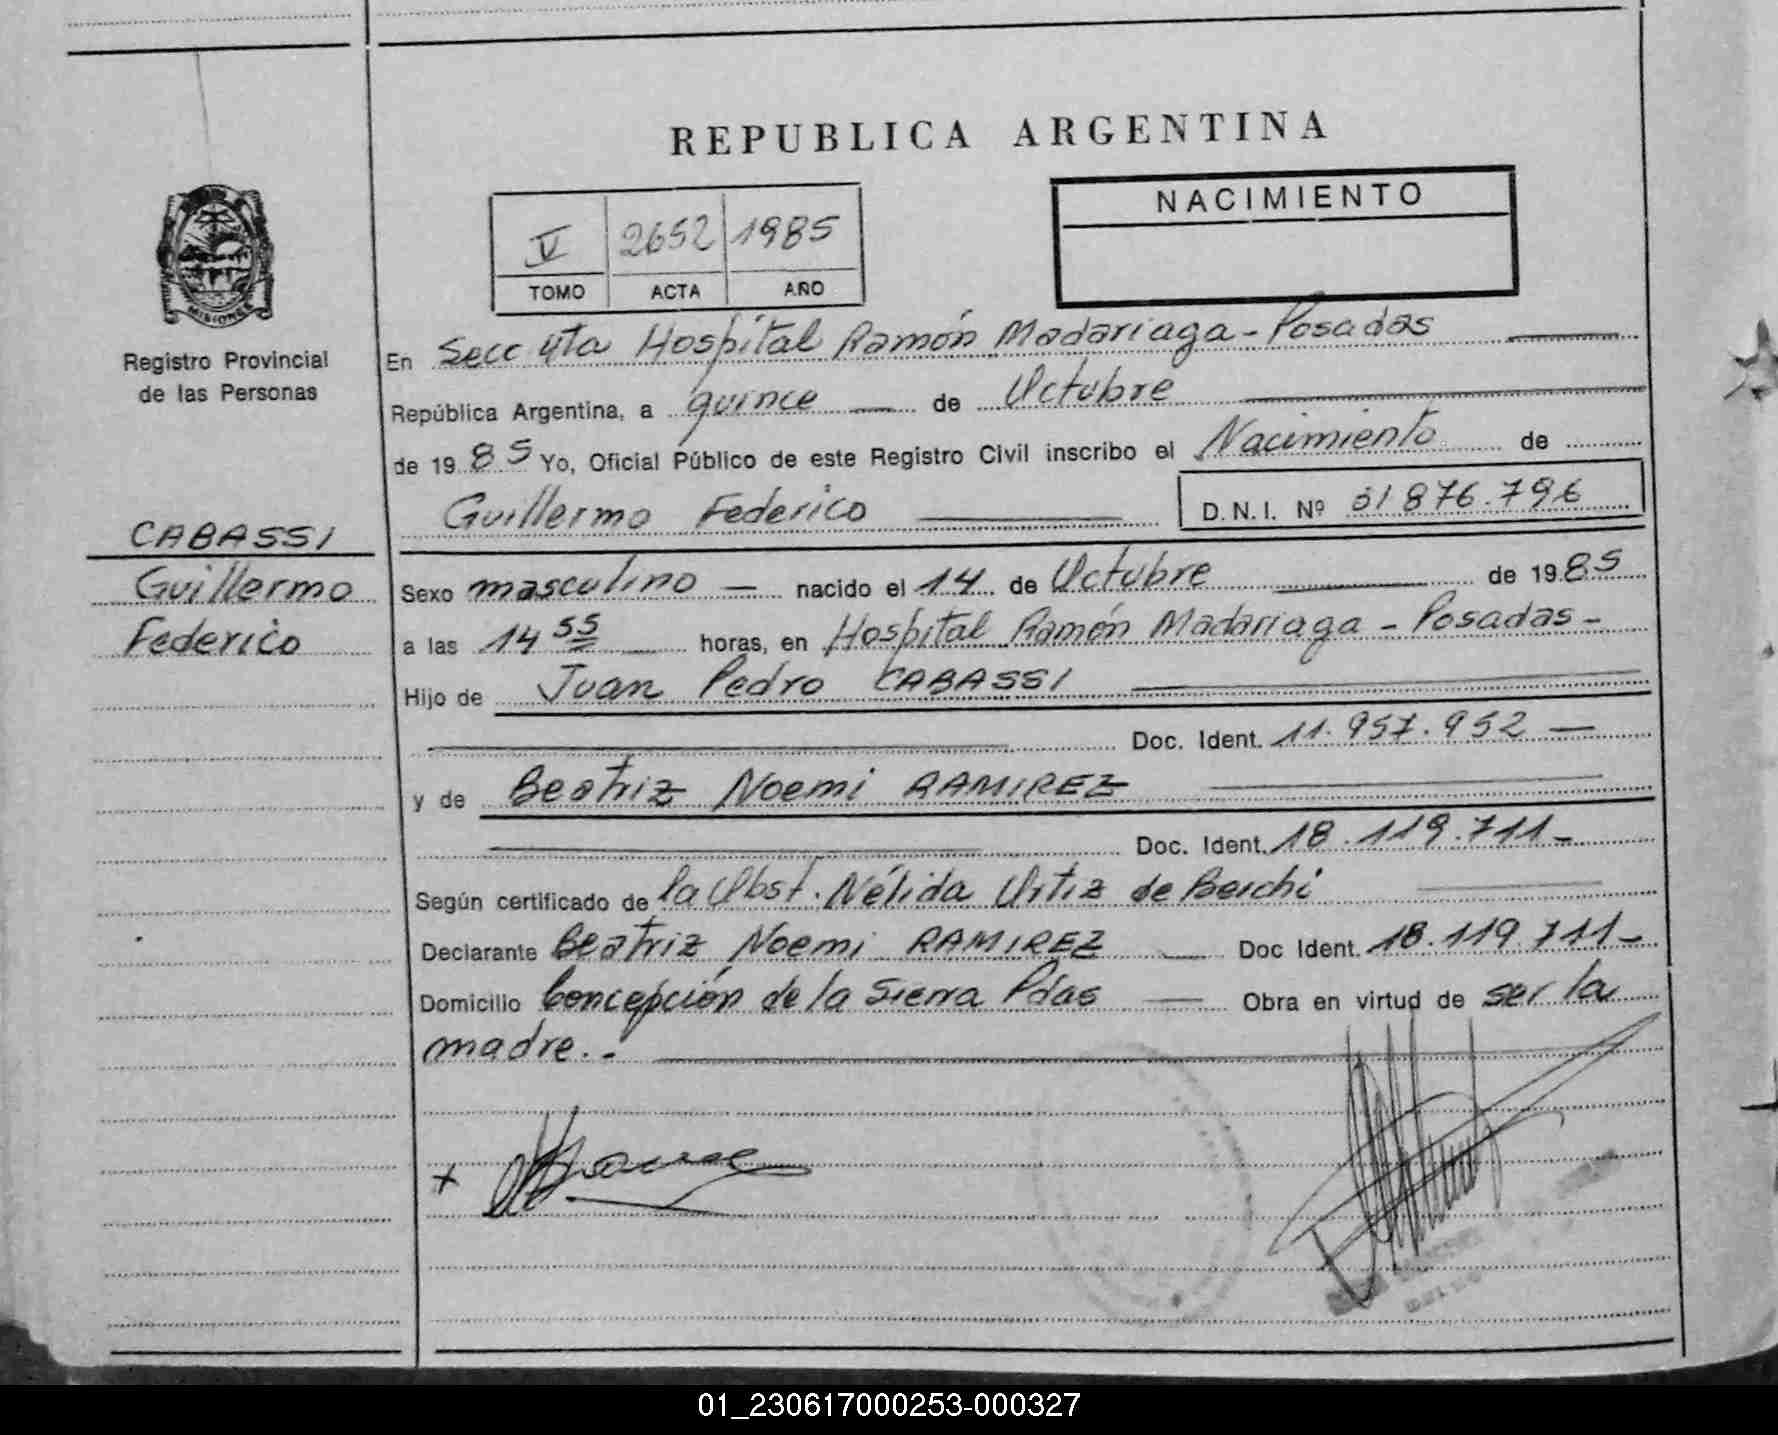 REPUBLICA ARGENTINA
NACIMIENTO
V 2652 1985
TOMO ACTA AÑO
MISIONES
Registro Provincial
de las Personas
CABASSI
Guillermo
Federico
En Secc 4ta Hospital Ramón Madariaga - Posadas
República Argentina, a quince de Octubre
de 1985 Yo, Oficial Público de este Registro Civil inscribo el Nacimiento de
Guillermo Federico D.N.I. Nº 31876.796
Sexo masculino nacido el 14 de Octubre de 1985
a las 14 55 horas, en Hospital Ramón Madariaga - Posadas -
Hijo de Juan Pedro CABASSI
Doc. Ident. 11.957.952
y de Beatriz Noemi RAMIREZ
Doc. Ident. 18.119.711-
Según certificado de la Obst. Nélida Ortiz de
Declarante Beatriz Noemi RAMIREZ Doc Ident. 18.119.711-
Domicilio Concepción de la Sierra Pdas Obra en virtud de ser la
madre.-
01_230617000253-000327